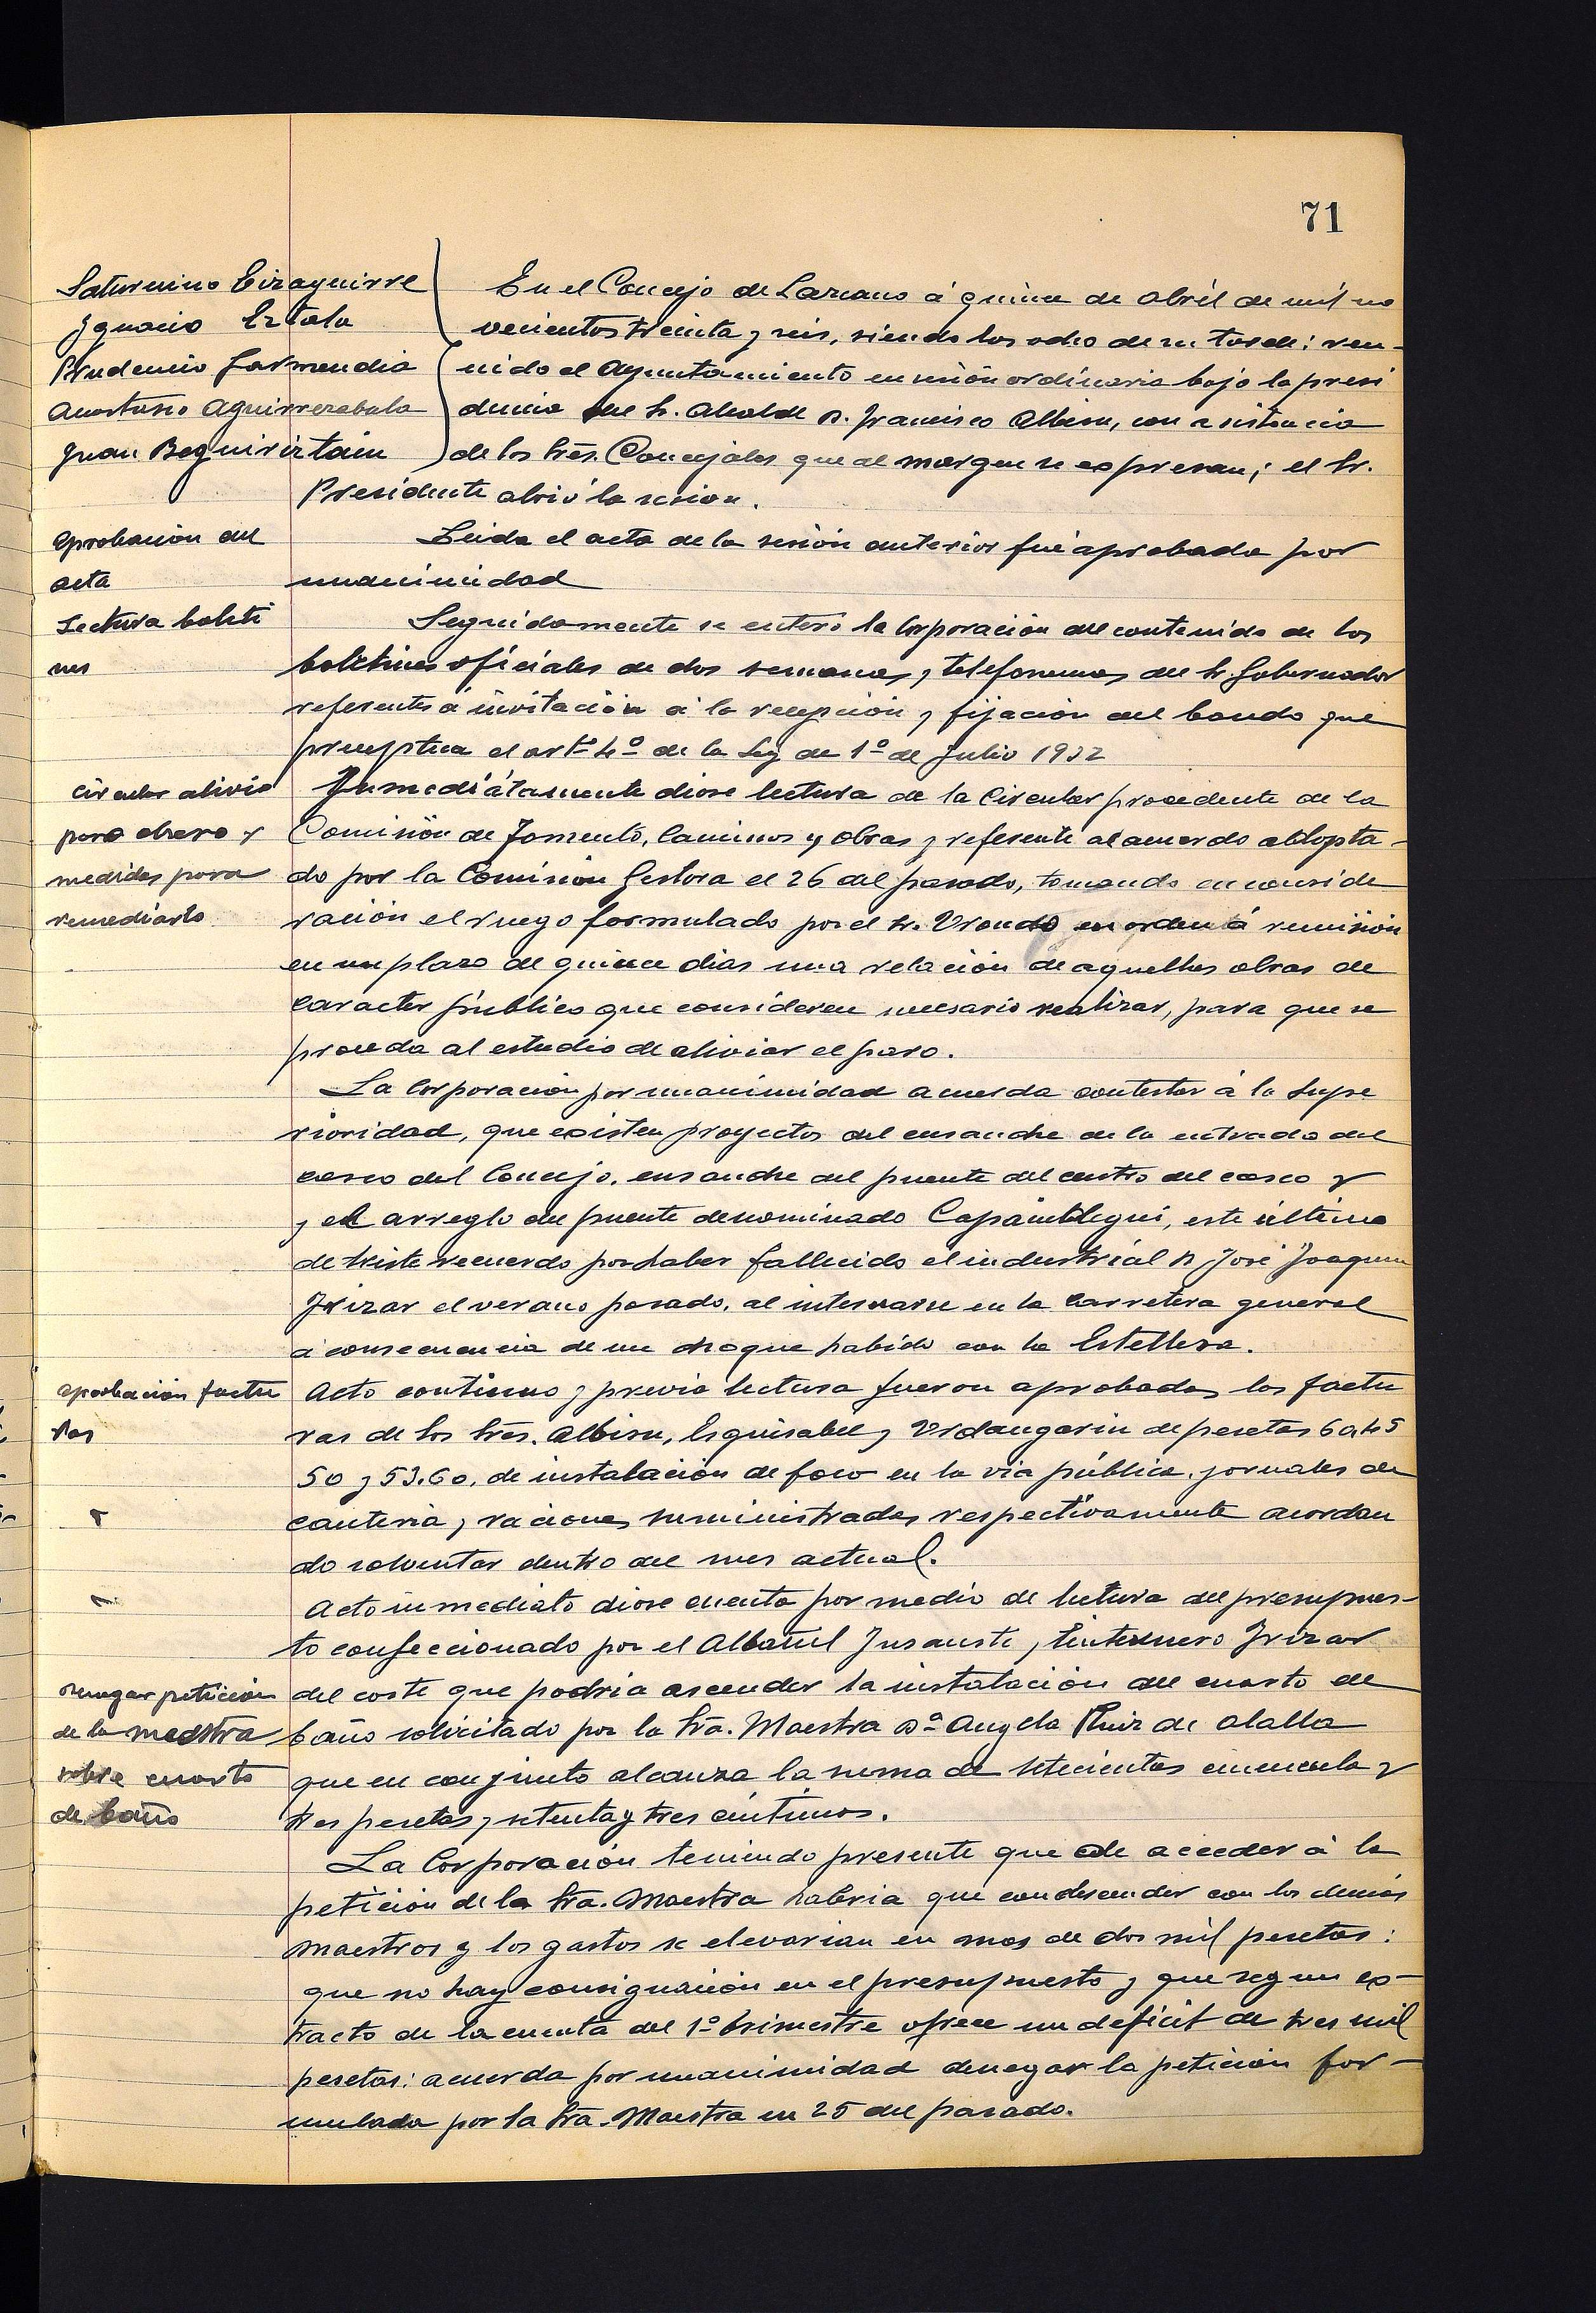 71
Saturnino Eizaguirre
Ignacio Eztala
Prudencio Garmendia
Anastasio Aguirrezabala
Juan Beguiristain
En el Concejo de Lazcano á quince de abril de mil no
vecientos treinta y seis, siendo las ocho de su tarde: reu-
nido el Ayuntamiento en sesión ordinaria bajo la presi
dencia del Sr. Alcalde D. Francisco Albisu, con asistencia
de los Sres. Concejales que al margen se expresan; el Sr.
Presidente abrió la sesion.
Aprobación del
acta
Leida el acta de la sesión anterior fué aprobada por
unanimidad
Lectura boleti
nes
Seguidamente se enteró la Corporación del contenido de los
boletines oficiales de dos semanas, y telefonemas del Sr. Gobernador
referentes á invitación á la recepción y fijación del bando que
preceptua el artº 4º de la Ley de 1º de Julio 1932
circular alivio
paro obrero y
medidas para
remediarlo
Inmediátamente diose lectura de la Circular procedente de la
Comisión de Fomento, Caminos y Obras y referente al acuerdo adopta-
do por la Comisión Gestora el 26 del pasado, tomando en conside
ración el ruego formulado por el Sr. Urondo en orden á remisión
en un plazo de quince dias una relación de aquellas obras de
caracter público que consideren necesario realizar, para que se
proceda al estudio de aliviar el paro.
La Corporación por unanimidad acuerda contestar á la Supe
rioridad, que existen proyectos del ensanche de la entrada del
casco del Concejo, ensanche del puente del centro del casco y
y el arreglo del puente denominado este último
de triste recuerdo por haber fallecido el industrial D. José Joaquin
Irizar el verano pasado, al internarse en la carretera general
á consecuencia de un choque habido con la Estellesa.
aprobación factu
ras
Acto continuo y previa lectura fueron aprobadas las factu
ras de los Sres. Albisu, Esquisabel y Urdangarin de pesetas 60,45
50 y 53.60, de instalación de foco en la via pública, jornales de
canteria, y raciones suministradas respectivamente acordan
do solventar dentro del mes actual.
Acto inmediato diose cuenta por medio de lectura del presupues-
to confeccionado por el Albañil Insausti, y Irizar
del coste que podria ascender la instalación del cuarto de
denegar petición
de la maestra
sobre cuarto
de baño
baño solicitado por la Sra. Maestra Dª Angela Ruiz de Alalla
que en conjunto alcanza la suma de setecientas cincuenta y
tres pesetas y setenta y tres céntimos.
La Corporación teniendo presente que de acceder á la
petición de la Sra. Maestra habria que condescender con los demás
maestros y los gastos se elevarian en mas de dos mil pesetas:
que no hay consignación en el presupuesto y que segun ex-
tracto de la cuenta del 1º trimestre ofrece un déficit de tres mil
pesetas: acuerda por unanimidad denegar la petición for-
mulada por la Sra. Maestra en 25 del pasado.